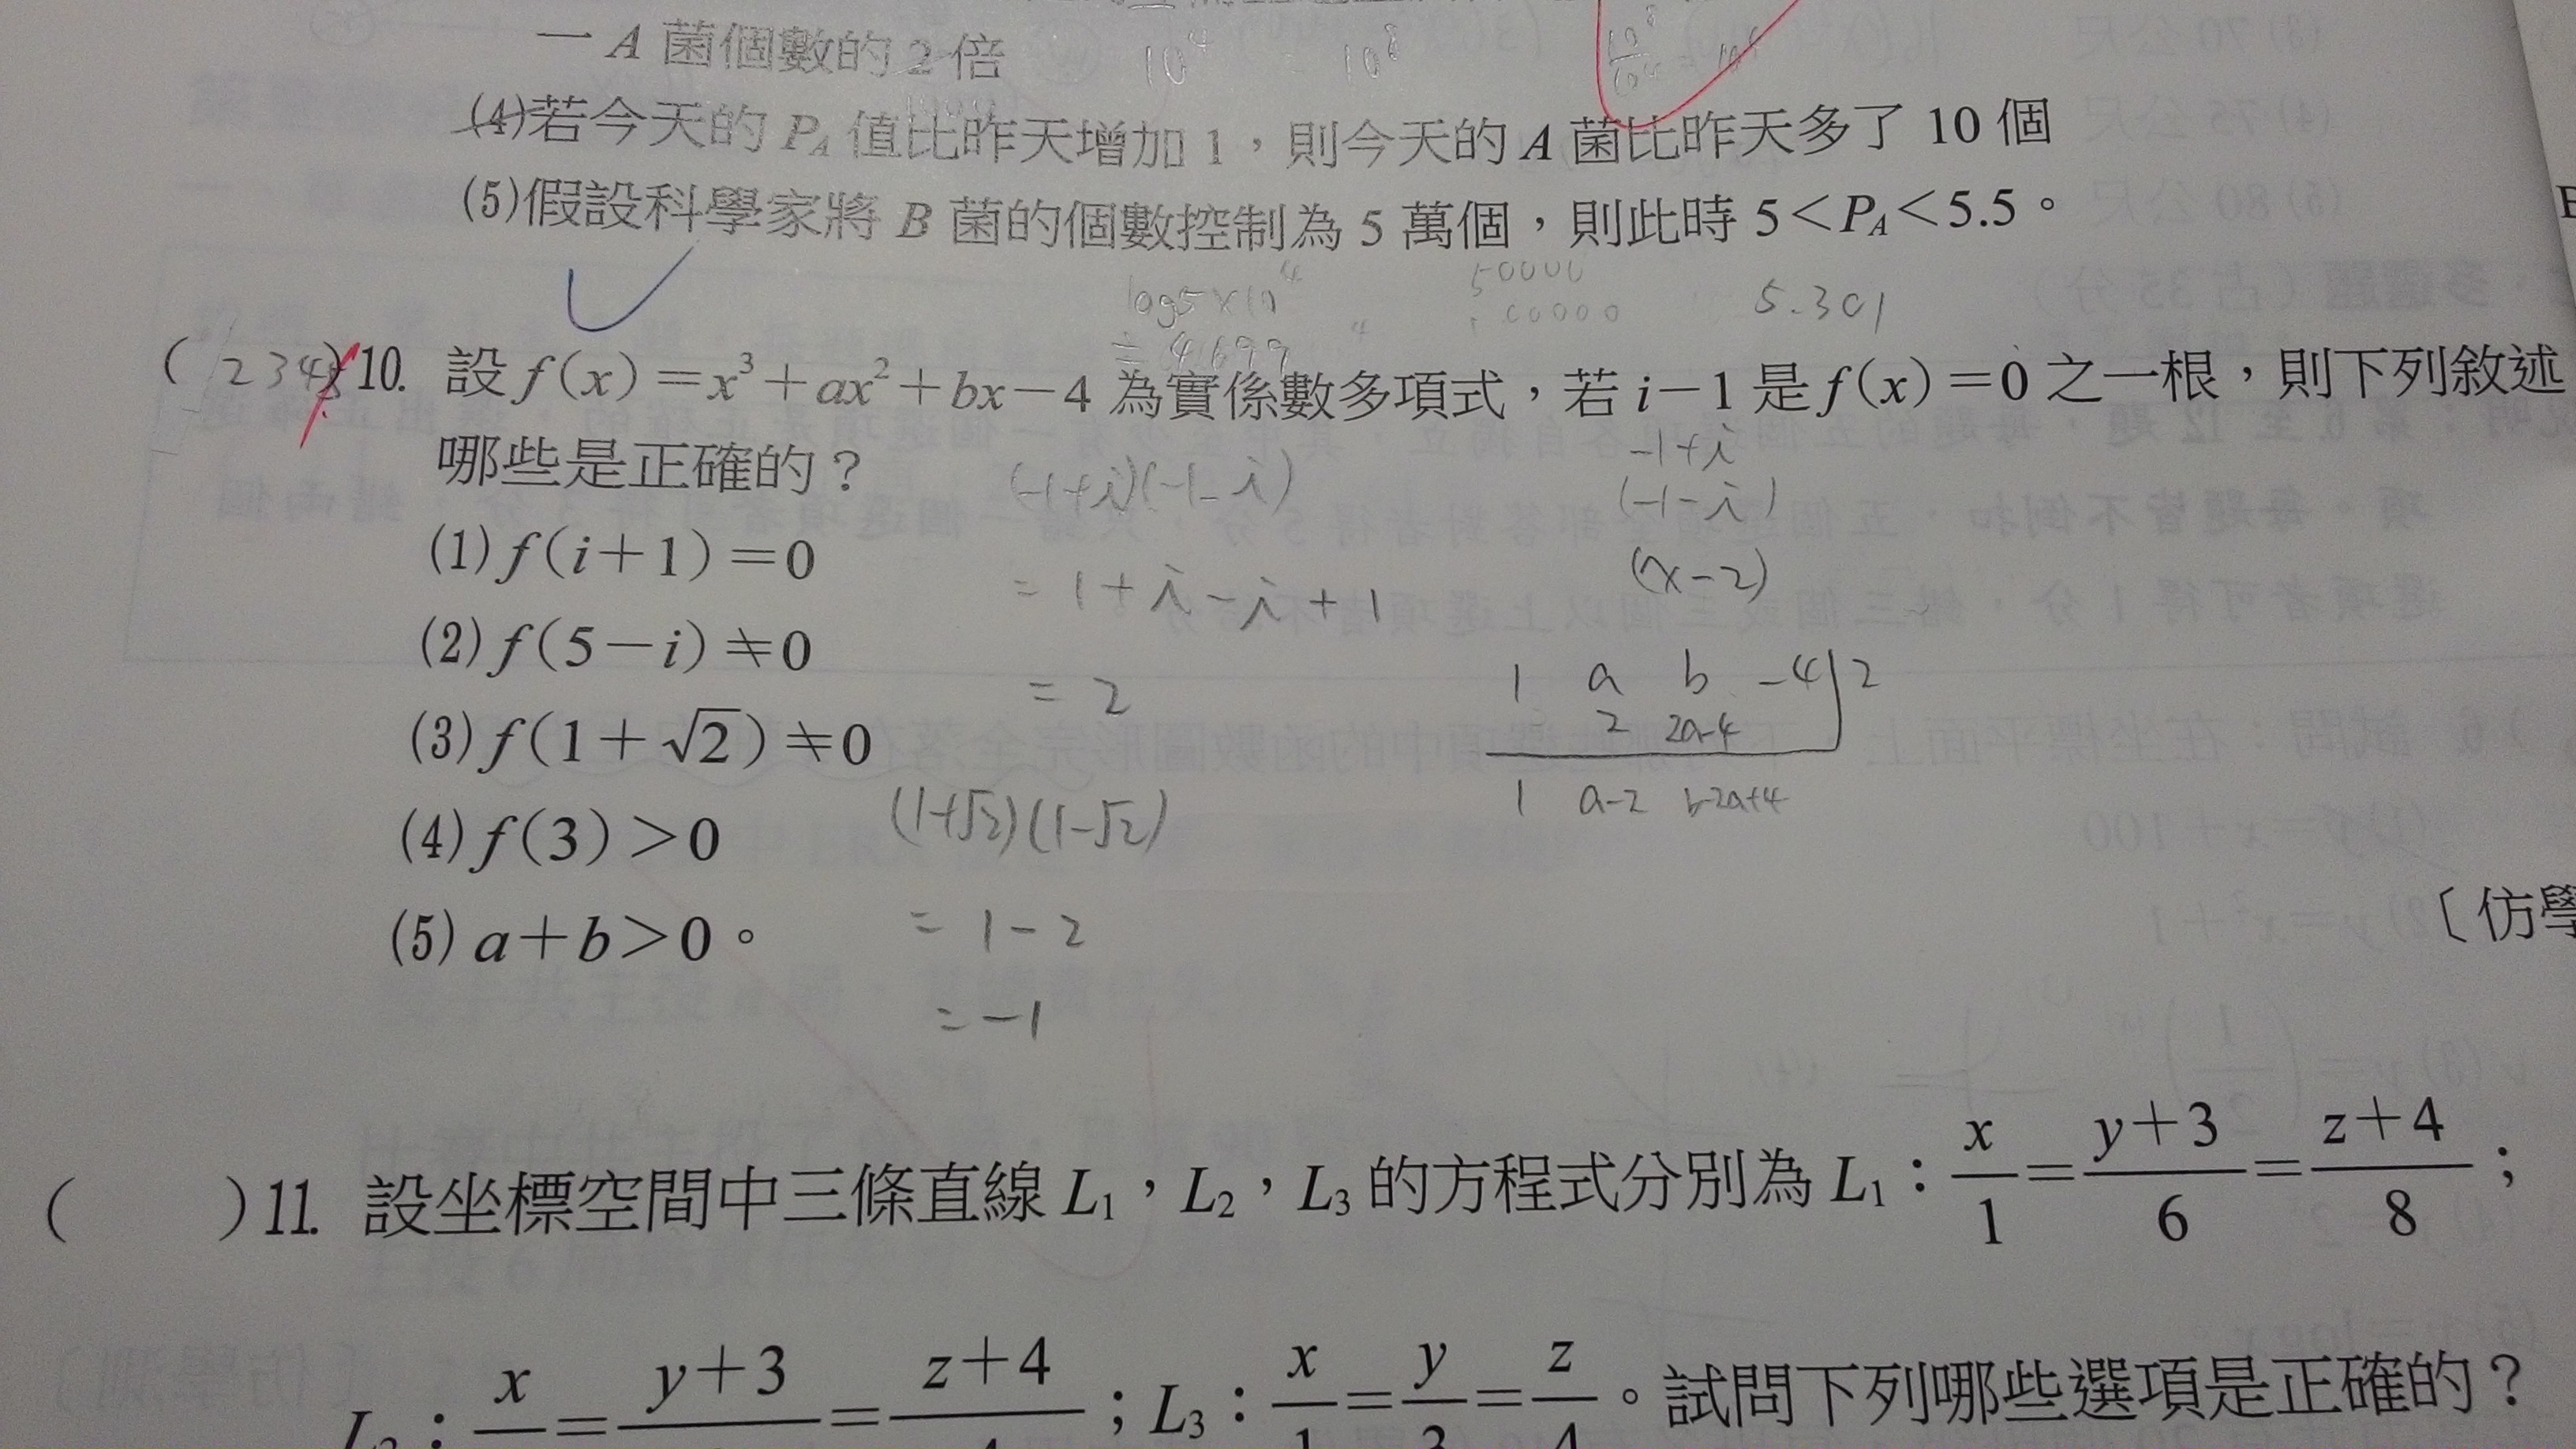 一 A 菌個數的 2 倍
10⁴ 10⁸
(4)若今天的 P_A 值比昨天增加 1，則今天的 A 菌比昨天多了 10 個
(5)假設科學家將 B 菌的個數控制為 5 萬個，則此時 5＜P_A＜5.5。
log5×10⁴
50000
5.301
≒ 4.699
( 234 )10. 設 f(x)＝x³＋ax²＋bx－4 為實係數多項式，若 i－1 是 f(x)＝0 之一根，則下列敘述
哪些是正確的？
(-1+i)(-1-i)
-1+i
(-1-i)
(1) f(i＋1)＝0
= 1+i-i+1
(x-2)
(2) f(5－i)≠0
= 2
1 a b -4 2
2 2a-4
(3) f(1＋√2)≠0
1 a-2 b-2a+4
(1+√2)(1-√2)
(4) f(3)＞0
= 1-2
(5) a＋b＞0。
〔仿學
= -1
( )11. 設坐標空間中三條直線 L₁，L₂，L₃ 的方程式分別為 L₁：x/1＝y＋3/6＝z＋4/8；
L₂：x/＝y＋3/＝z＋4/4；L₃：x/1＝y/3＝z/4。試問下列哪些選項是正確的？